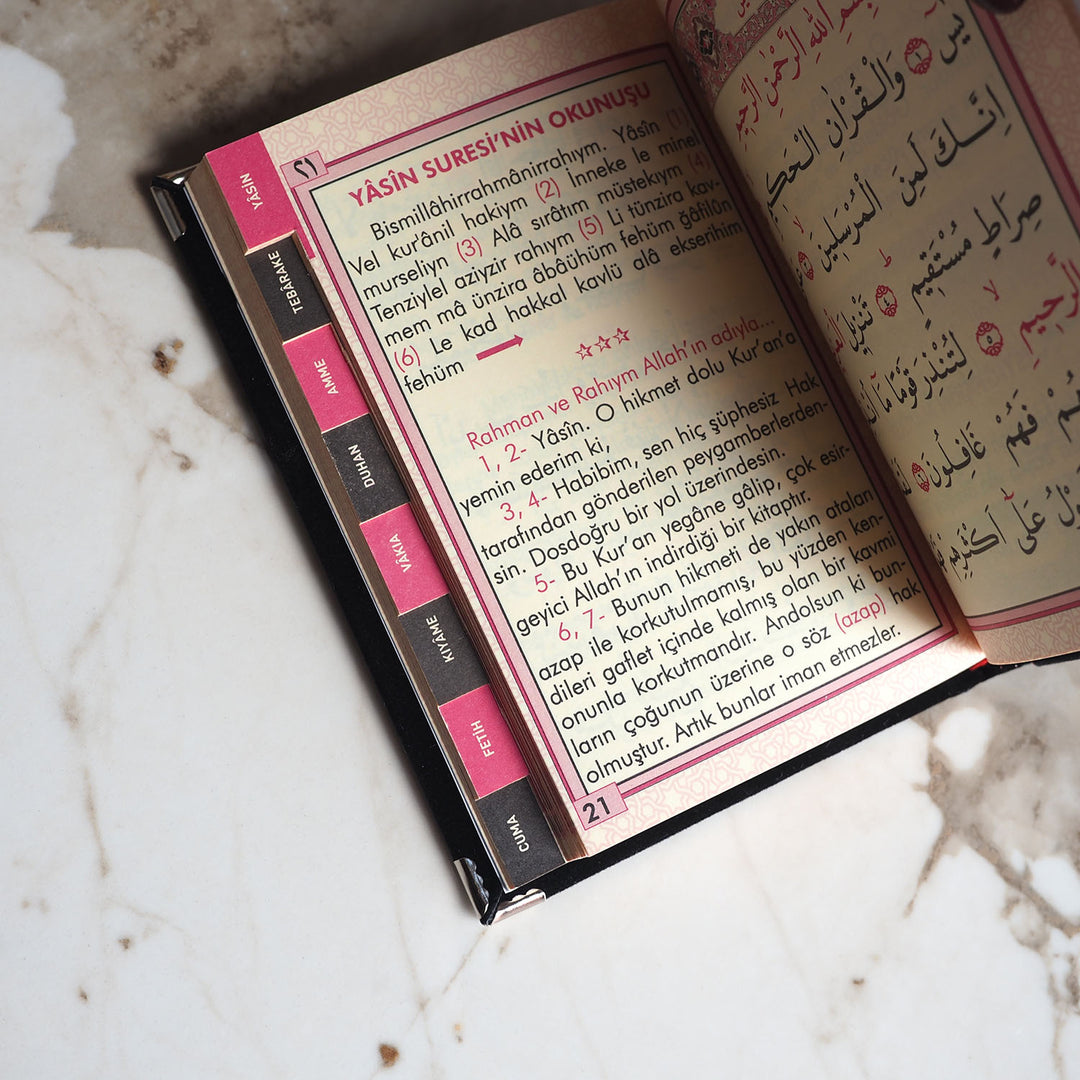 YÂSÎN
TEBÂRAKE
AMME
DUHAN
VÂKIA
KIYÂME
FETİH
CUMA
٢١
YÂSÎN SURESİ'NİN OKUNUŞU
Bismillâhirrahmânirrahıym. Yâsîn (1)
Vel kur'ânil hakiym (2) İnneke le minel
murseliyn (3) Alâ sırâtım müstekıym (4)
Tenziylel aziyzir rahıym (5) Li tünzira kav-
mem mâ ünzira âbâühüm fehüm ğâfilûn
(6) Le kad hakkal kavlü alâ ekserihim
fehüm
Rahman ve Rahıym Allah'ın adıyla...
1, 2- Yâsîn. O hikmet dolu Kur'an'a
yemin ederim ki,
3, 4- Habibim, sen hiç şüphesiz Hak
tarafından gönderilen peygamberlerden-
sin. Dosdoğru bir yol üzerindesin.
5- Bu Kur'an yegâne gâlip, çok esir-
geyici Allah'ın indirdiği bir kitaptır.
6, 7- Bunun hikmeti de yakın ataları
azap ile korkutulmamış, bu yüzden ken-
dileri gaflet içinde kalmış olan bir kavmi
onunla korkutmandır. Andolsun ki bun-
ların çoğunun üzerine o söz (azap) hak
olmuştur. Artık bunlar iman etmezler.
21
بِسْمِ اللهِ الرَّحْمٰنِ الرَّحِيمِ
يٰسٓ ١ وَالْقُرْاٰنِ الْحَكِيمِ
اِنَّكَ لَمِنَ الْمُرْسَلِينَ
صِرَاطٍ مُسْتَقِيمٍ ٤ تَنْزِيلَ
الرَّحِيمِ ٥ لِتُنْذِرَ قَوْمًا مَٓا
فَهُمْ غَافِلُونَ ٦
عَلٰٓى اَكْثَرِهِمْ